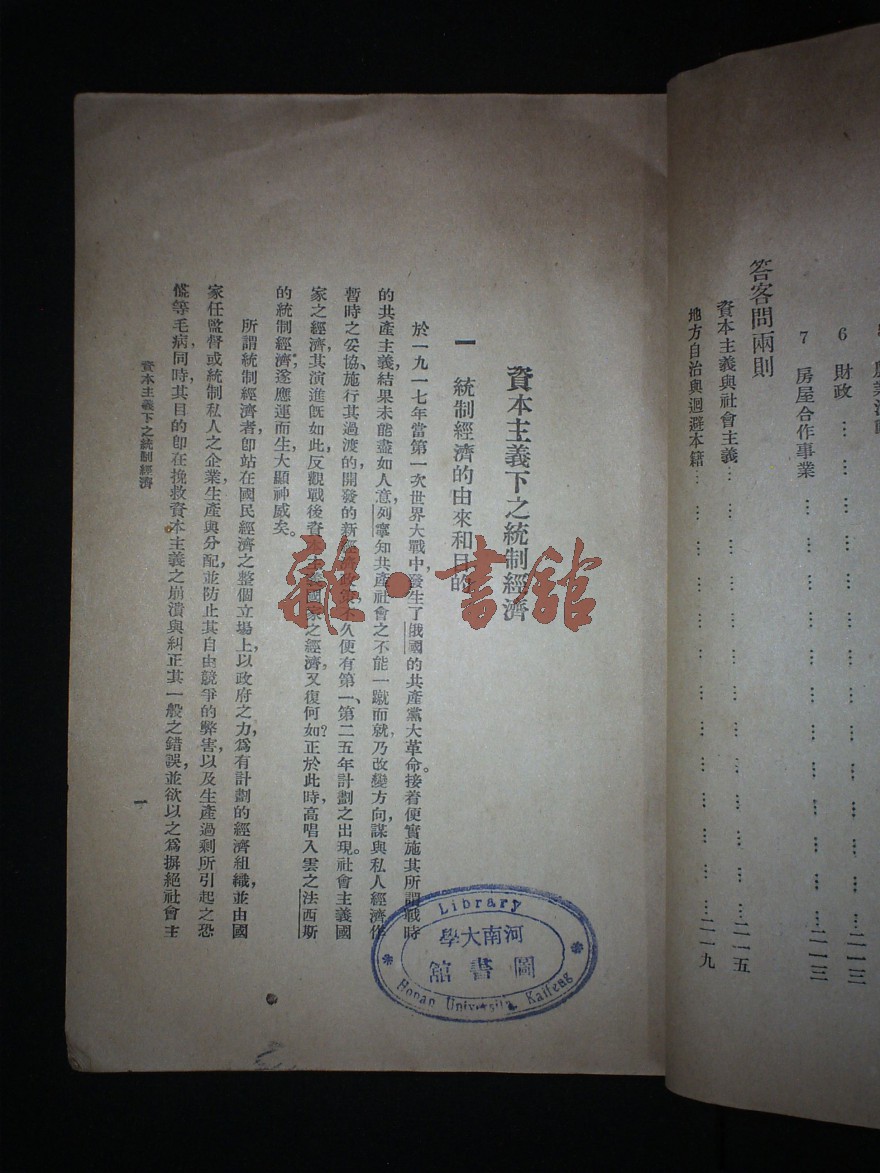 6 財政 … … … … … … … … … 二一三
7 房屋合作事業 … … … … … … … 二一三
答客問兩則
資本主義與社會主義 … … … … … … … 二一五
地方自治與迴避本籍 … … … … … … … 二一九
資本主義下之統制經濟
一 統制經濟的由來和目的
於一九一七年當第一次世界大戰中,發生了俄國的共產黨大革命。接着便實施其所謂戰時
的共產主義,結果未能盡如人意,列寧知共產社會之不能一蹴而就,乃改變方向,謀與私人經濟作
暫時之妥協、施行其過渡的,開發的新經濟政策,不久便有第一、第二五年計劃之出現。社會主義國
家之經濟,其演進既如此,反觀戰後資本主義國家之經濟,又復何如?正於此時,高唱入雲之法西斯
的統制經濟,遂應運而生,大顯神威矣。
所謂統制經濟者,卽站在國民經濟之整個立場上,以政府之力,爲有計劃的經濟組織,並由國
家任監督或統制私人之企業生產與分配,並防止其自由競爭的弊害,以及生產過剩所引起之恐
慌等毛病,同時,其目的卽在挽救資本主義之崩潰與糾正其一般之錯誤,並欲以之爲摒絕社會主
資本主義下之統制經濟
一
雜·書館
Library
河南大學
圖書館
Honan University, Kaifeng